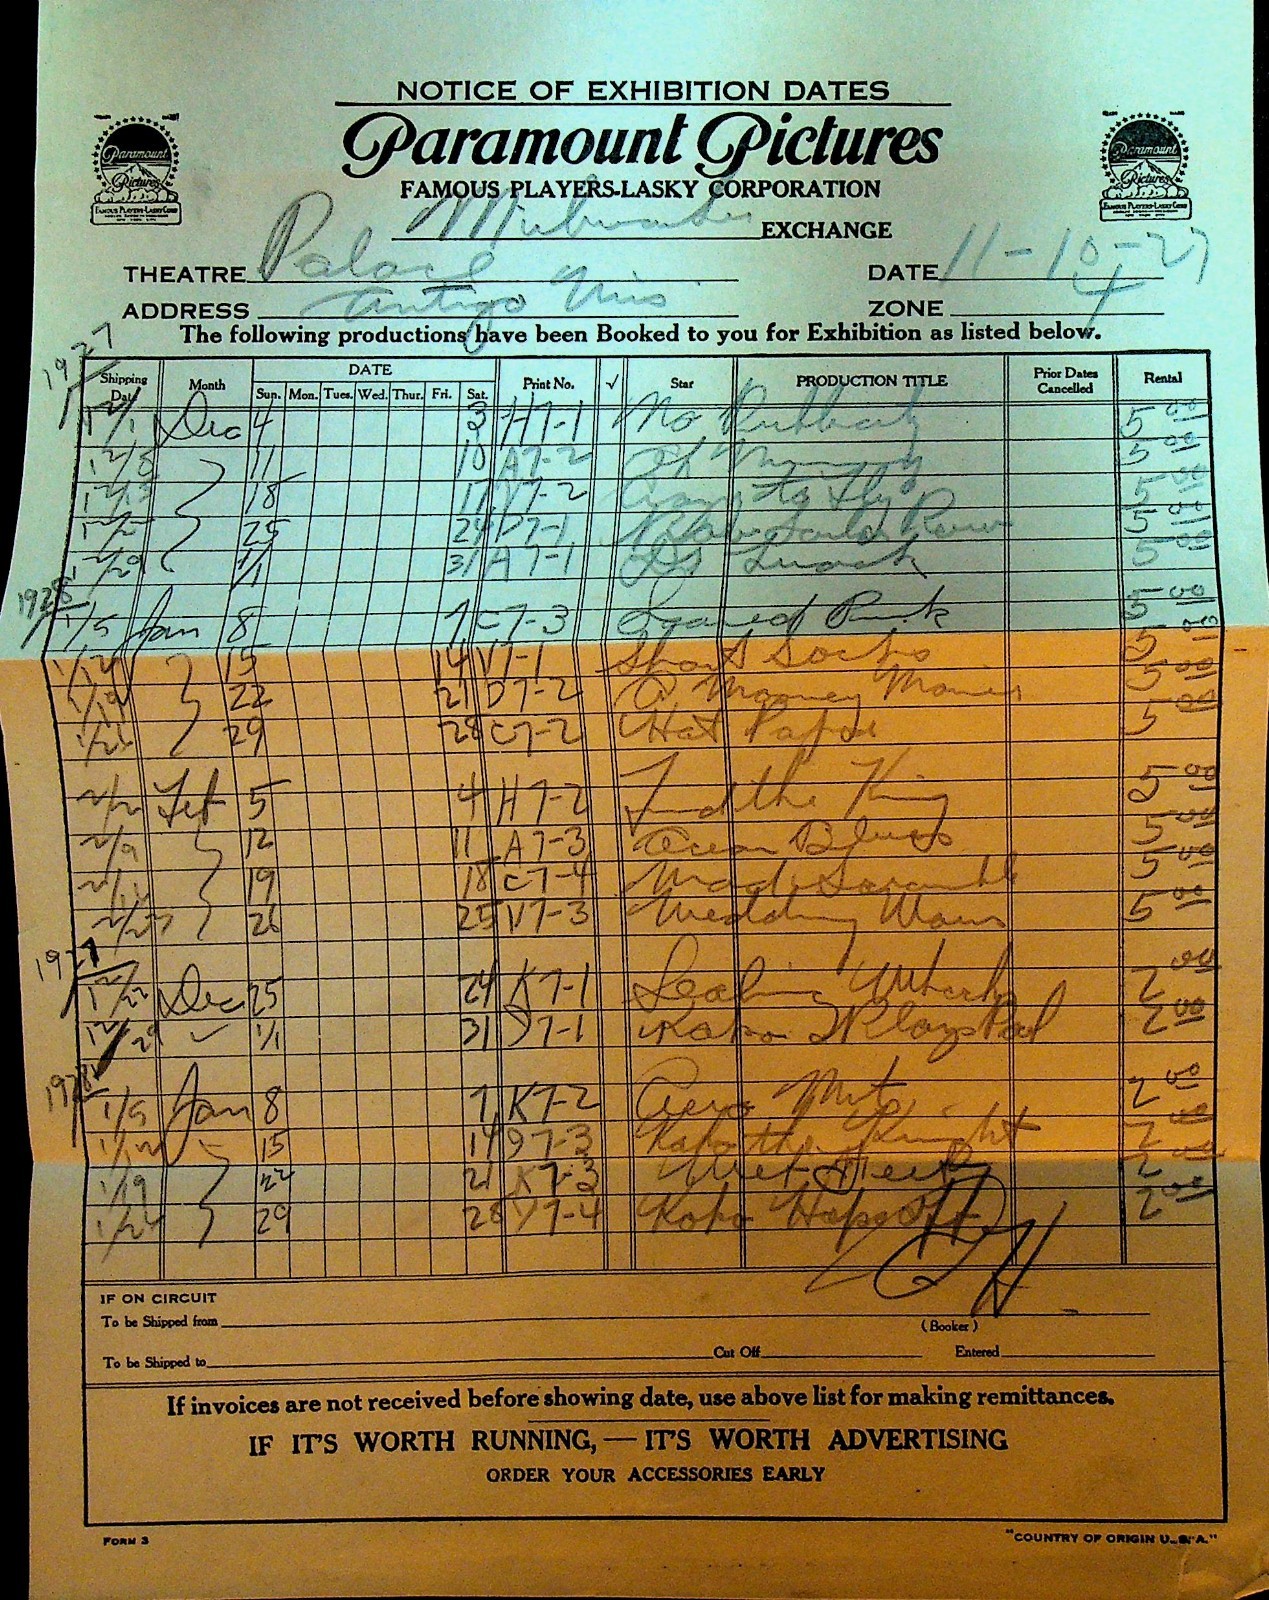 NOTICE OF EXHIBITION DATES
Paramount Pictures
FAMOUS PLAYERS-LASKY CORPORATION
Milwaukee EXCHANGE
THEATRE Palace DATE 11-10-27
ADDRESS Antigo Wis ZONE 4
The following productions have been Booked to you for Exhibition as listed below.
1927
Shipping Date Month DATE Print No. √ Star PRODUCTION TITLE Prior Dates Cancelled Rental
Sun. Mon. Tues. Wed. Thur. Fri. Sat.
12/1 Dec 4 3 H7-1 No Publicity 5 00
12/8 11 10 A7-2 5 00
12/15 18 17 V7-2 5 00
25 24 D7-1 5 00
12/29 1/1 31 A7-1 5 00
1928
1/5 Jan 8 7 C7-3 Scared Pink 5 00
1/12 15 14 V7-1 Short Socks 5 00
1/19 22 21 D7-2 A Mooney Mariner 5 00
1/26 29 28 C7-2 Hot Papa 5 00
2/2 Feb 5 4 H7-2 Find the King 5 00
2/9 12 11 A7-3 Ocean Blues 5 00
19 18 C7-4 Mad Scramble 5 00
26 25 V7-3 Wedding 5 00
1927
12/22 Dec 25 24 K7-1 2 00
12/29 1/1 31 7-1 Koko Plays Pool 2 00
1928
1/5 Jan 8 7 K7-2 Aero Nuts 2 00
1/12 15 14 7-3 Koko the Knight 2 00
1/19 22 21 K7-3 2
29 28 7-4 Koko Hops Off 2 00
IF ON CIRCUIT
To be Shipped from (Booker)
To be Shipped to Cut Off Entered
If invoices are not received before showing date, use above list for making remittances.
IF IT'S WORTH RUNNING,— IT'S WORTH ADVERTISING
ORDER YOUR ACCESSORIES EARLY
FORM 3 "COUNTRY OF ORIGIN U.S.A."